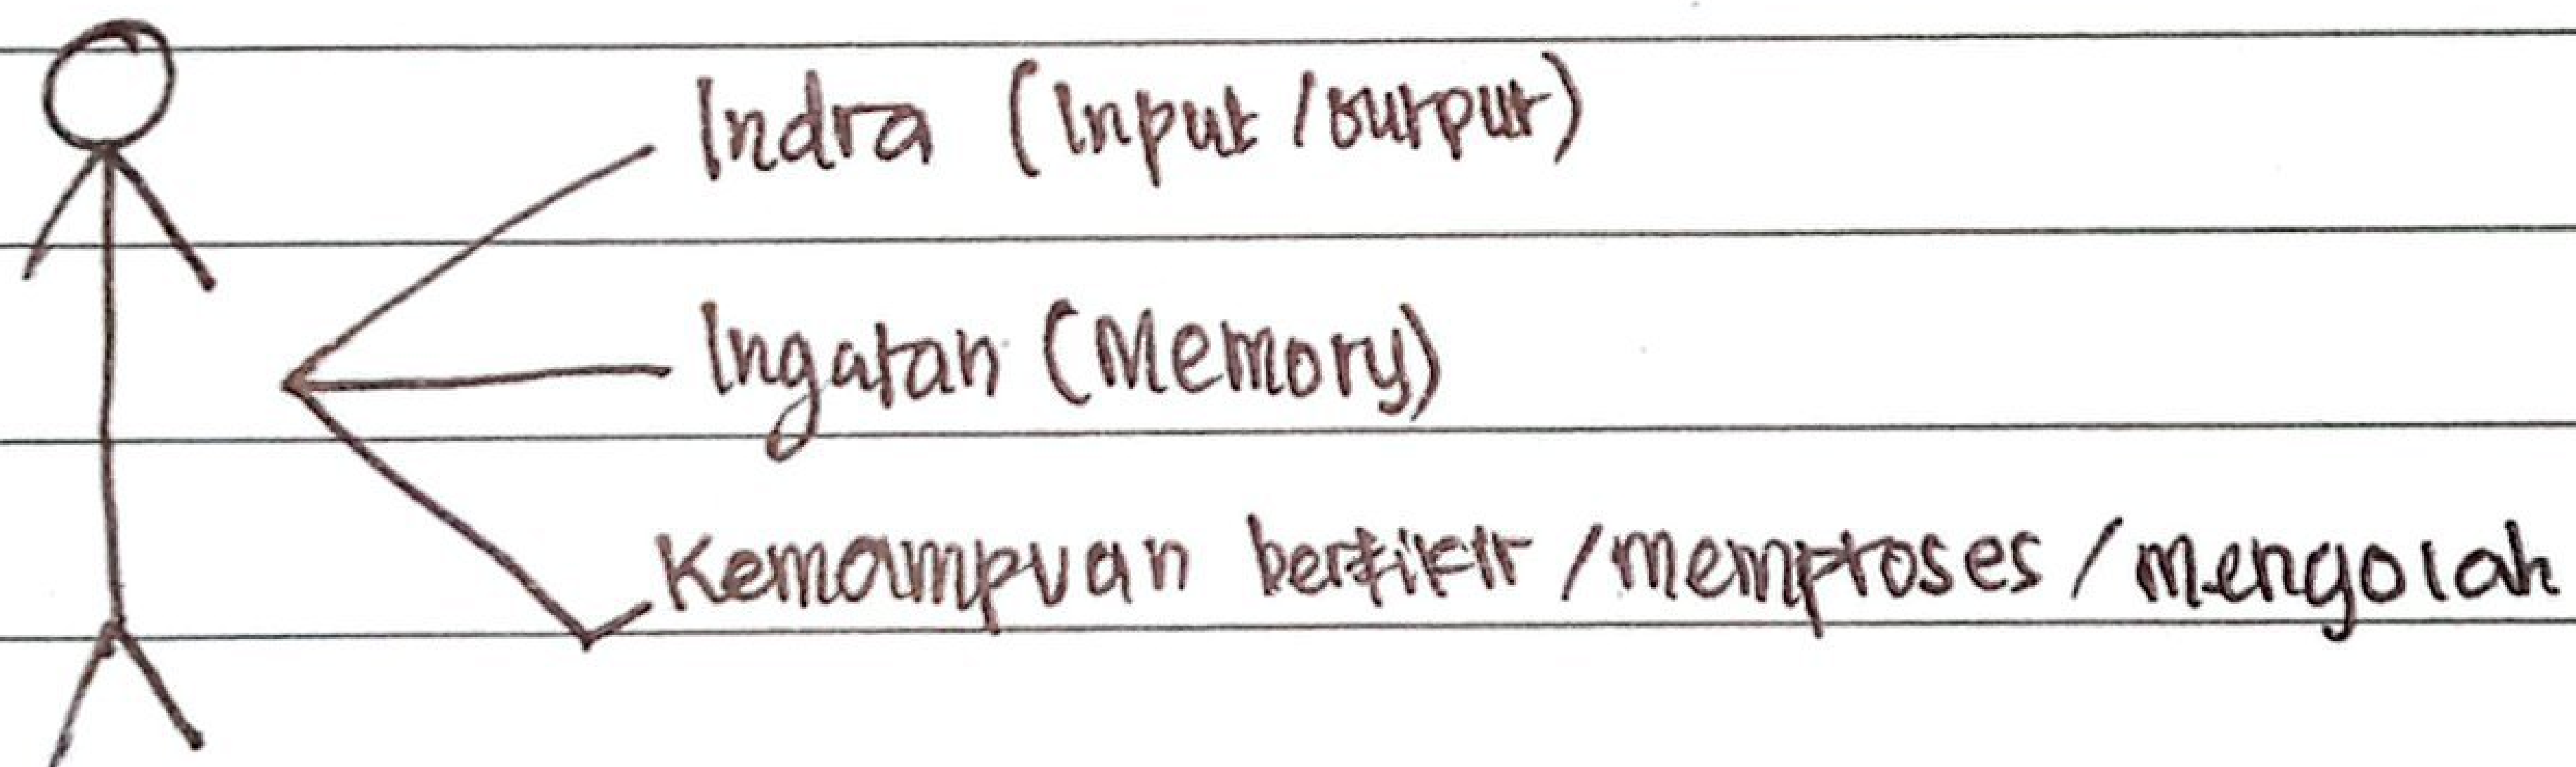 Indra (Input / output)
Ingatan (Memory)
Kemampuan berfikir / memproses / mengolah